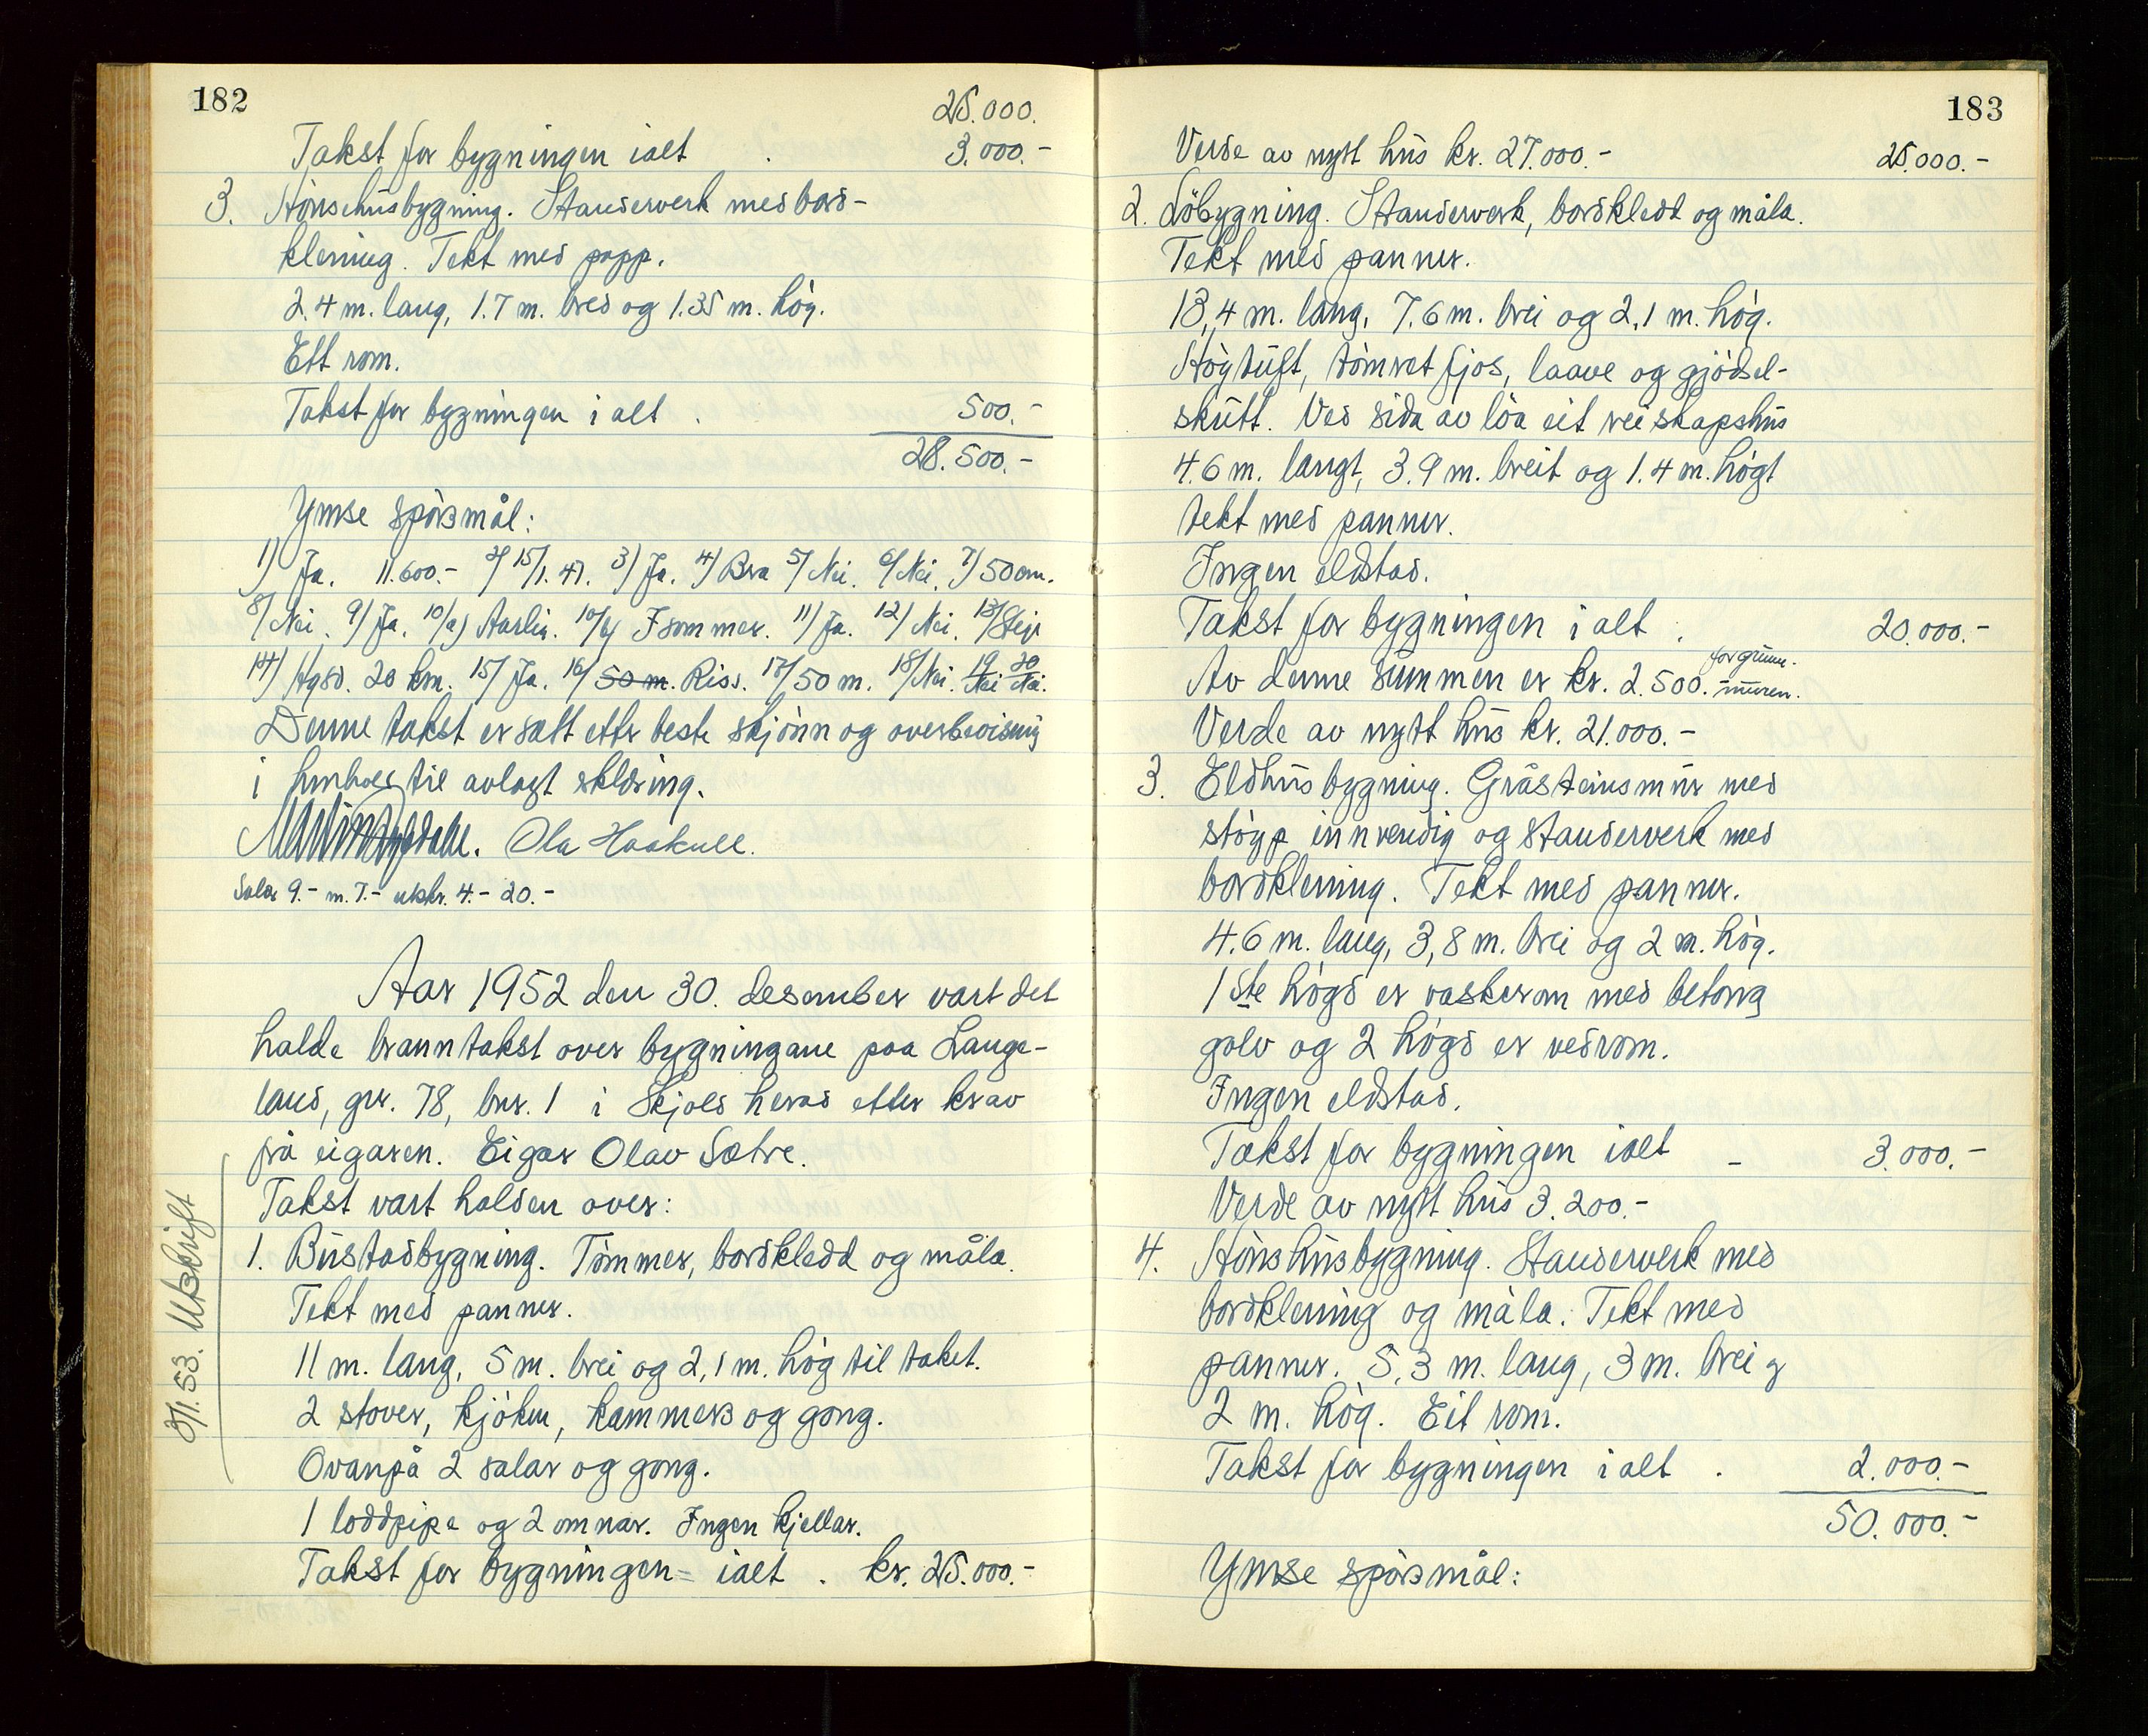 182
25.000.
Takst for bygningen ialt . 3.000.-
3. Hönsehusbygning. Standerverk med bord-
kledning. Tekt med papp.
2.4 m. lang, 1.7 m. bred og 1.35 m. hög.
Ett rom.
Takst for bygningen i alt . 500.-
28.500.-
Ymse spörsmål:
1) Ja. 11.600.- 2/ 15/1.47. 3) Ja. 4) Bra 5/ Nei. 6/ Nei. 7) 50 cm.
8/ Nei. 9/ Ja. 10/a) Aarlig. 10/b) I sommer. 11) Ja. 12) Nei. 13/ Steje
14) Hgsd. 20 km. 15/ Ja. 16/ 50 m. Riss. 17/ 50 m. 18/ Nei. 19 Nei 20 Nei.
Denne takst er satt etter beste skjönn og overbevisnig
i henhold til avlagt erklæring.
Ola Haakull.
Salær 9.- m. 7.- utskr. 4.- 20.-
Aar 1952 den 30. desember vart det
halde branntakst over bygningane paa Lange-
land, gnr. 78, bnr. 1 i Skjold herad etter krav
frå eigaren. Eigar Olav Sætre.
Takst vart halden over:
1. Bustadbygning. Tömmer, bordkledd og måla.
Tekt med panner.
11 m. lang, 5 m. brei og 2,1 m. hög til taket.
2 stover, kjöken, kammers og gong.
Ovanpå 2 salar og gong.
1 loddpipe og 2 omnar. Ingen kjellar.
Takst for bygningen ialt . kr. 25.000.-
3/1.53. Utskrift
183
Verde av nytt hus kr. 27.000.- 25.000.-
2. Löbygning. Standerverk, bordkledd og måla.
Tekt med panner.
13,4 m. lang, 7.6 m. brei og 2,1 m. hög.
Högtuft, tömret fjos, laave og gjödsel-
skutt. Ved sida av löa eit reiskapshus
4.6 m. langt, 3.9 m. breit og 1.4 m. högt
tekt med panner.
Ingen eldstad.
Takst for bygningen i alt . 20.000.-
Av denne summen er kr. 2.500. for grunn-
muren.
Verde av nytt hus kr. 21.000.-
3. Eldhusbygning. Gråsteinsmur med
stöyp innvendig og standerverk med
bordklening. Tekt med panner.
4.6 m. lang, 3,8 m. brei og 2 m. hög.
1ste högd er vaskerom med betong
golv og 2 högd er vedrom.
Ingen eldstad.
Takst for bygningen ialt - 3.000.-
Verde av nytt hus 3.200.-
4. Hönshusbygning. Standerverk med
bordklening og måla. Tekt med
panner. 5,3 m. lang, 3 m. brei og
2 m. hög. Eit rom.
Takst for bygningen i alt . 2.000.-
50.000.-
Ymse spörsmål: